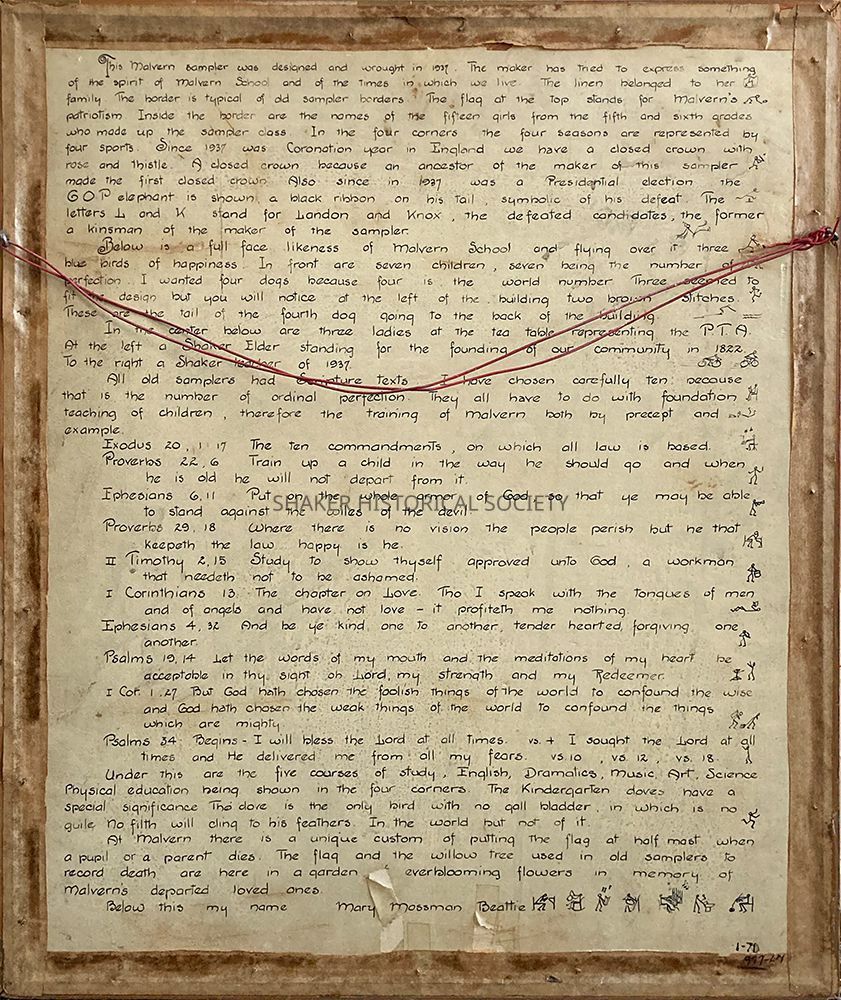 This Malvern sampler was designed and wrought in 1937. The maker has tried to express something
of the spirit of Malvern School and of the times in which we live. The linen belonged to her
family. The border is typical of old sampler borders. The flag at the top stands for Malvern's
patriotism. Inside the border are the names of the fifteen girls from the fifth and sixth grades
who made up the sampler class. In the four corners the four seasons are represented by
four sports. Since 1937 was Coronation year in England we have a closed crown with
rose and thistle. A closed crown because an ancestor of the maker of this sampler
made the first closed crown. Also since in 1937 was a Presidential election the
G O P elephant is shown, a black ribbon on his tail, symbolic of his defeat. The
letters L and K stand for Landon and Knox, the defeated candidates, the former
a kinsman of the maker of the sampler.
Below is a full face likeness of Malvern School and flying over it three
blue birds of happiness. In front are seven children, seven being the number of
perfection. I wanted four dogs because four is the world number. Three seemed to
fit the design but you will notice at the left of the building two brown stitches.
These are the tail of the fourth dog going to the back of the building.
In the center below are three ladies at the tea table representing the P.T.A.
At the left a Shaker Elder standing for the founding of our community in 1822.
To the right a Shaker teacher of 1937.
All old samplers had Scripture texts. I have chosen carefully ten because
that is the number of ordinal perfection. They all have to do with foundation
teaching of children, therefore the training of Malvern both by precept and
example.
Exodus 20, 1-17 The ten commandments, on which all law is based.
Proverbs 22,6 Train up a child in the way he should go and when
he is old he will not depart from it.
Ephesians 6,11 Put on the whole armor of God so that ye may be able
to stand against the wiles of the devil.
SHAKER HISTORICAL SOCIETY
Proverbs 29,18 Where there is no vision the people perish but he that
keepeth the law happy is he.
II Timothy 2,15 Study to show thyself approved unto God, a workman
that needeth not to be ashamed.
I Corinthians 13 The chapter on Love. Tho I speak with the tongues of men
and of angels and have not love - it profiteth me nothing.
Ephesians 4,32 And be ye kind one to another, tender hearted, forgiving one
another.
Psalms 19,14 Let the words of my mouth and the meditations of my heart be
acceptable in thy sight oh Lord, my strength and my Redeemer.
I Cor. 1-27 But God hath chosen the foolish things of the world to confound the wise
and God hath chosen the weak things of the world to confound the things
which are mighty.
Psalms 34 Begins - I will bless the Lord at all times. vs. 4 I sought the Lord at all
times and He delivered me from all my fears. vs 10, vs. 12, vs. 18.
Under this are the five courses of study, English, Dramatics, Music, Art, Science
Physical education being shown in the four corners. The Kindergarten doves have a
special significance The dove is the only bird with no gall bladder, in which is no
guile. No filth will cling to his feathers. In the world but not of it.
At Malvern there is a unique custom of putting the flag at half mast when
a pupil or a parent dies. The flag and the willow tree used in old samplers to
record death are here in a garden everblooming flowers in memory of
Malvern's departed loved ones.
Below this my name Mary Mossman Beattie
1-71